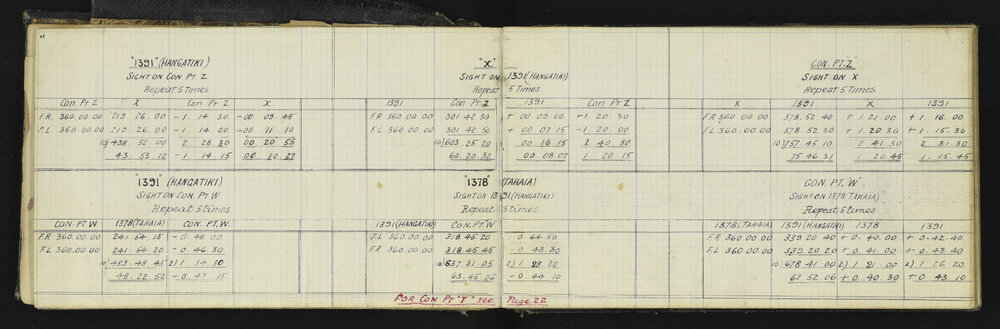 "1391" (HANGATIKI)
SIGHT ON CON PT Z
Repeat 5 Times
Con Pt Z X Con Pt Z X
FR 360.00.00 219 26.00 -1. 14 30 -00 09.45
FL 360 00.00 219.26.00 -1. 14.00 -00 11 10
10)438 52 00 2 28.30 00 20 55
43 53 12 -1 14 15 00 10 27
"X"
SIGHT ON 1391 (HANGATIKI)
Repeat 5 Times
1391 Con Pt. Z 1391 Con Pt Z
FR 360 00 00 301 42 30 + 00 09.00 -1 20 30
FL 360 00.00 301 42 50 + 00 07 15 -1 20 00
10)603 25 20 00 16 15 2 40 30
60.20.32 00 08 07 1 20 15
CON. PT. Z
SIGHT ON X
Repeat 5 Times
X 1391 X 1391
FR 360 00 00 378.52 40 + 1 21 00 + 1 16 00
FL 360 00 00 378 52 30 + 1 20 30 + 1. 15 30
10)757 45 10 2 41 30 2 31 30
75 46 31 1 20 45 1. 15. 45
"1391" (HANGATIKI)
SIGHT ON CON. PT W
Repeat 5 times
CON PT W 1378 (TAHAIA) CON. PT. W.
FR 360.00 00 241 54 15 -0 48 00
FL 360.00.00 241 54 30 -0 46 30
10)483.48 45 2) 1 34 30
48.22 52 -0 47 15
"1378" (TAHAIA)
SIGHT ON 1391 (HANGATIKI)
Repeat 5 times
1391 (HANGATIKI) CON. PT. W
FL 360.00.00 318 45 20 -0 44 50
FR 360 00.00 318 45 45 -0 43 30
10)637 31 05 2) 1 28 20
63.45 06 -0 44 10
CON. PT. W'
SIGHT ON 1378 (TAHAIA)
Repeat 5 times
1378 (TAHAIA) 1391 (HANGATIKI) 1378 1391
FR 360 00 00 339 20 40 + 0. 40. 00 + 0. 42. 40
FL 360 00 00 339 20 20 + 0 41 00 + 0. 43. 40
10)678 41 00 2) 1 21 00 2) 1 26 20
67 52 06 + 0 40 30 + 0 43. 10
FOR CON PT 'T' see Page 22